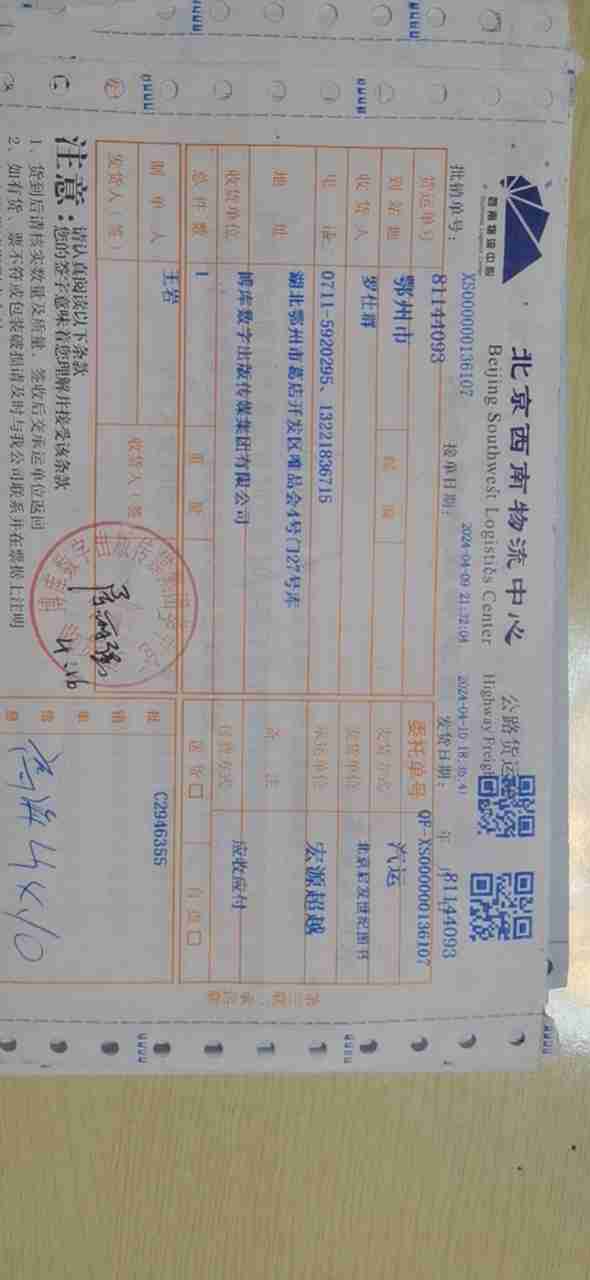 西南物流中心
北京西南物流中心
公路货运
Beijing Southwest Logistics Center
Highway Freigh
批销单号: XS0000000136107 接单日期: 2024-04-09 21:32:04 发货日期: 2024-04-10 18:36:4
年 月
81144093
货运单号 81144093 委托单号 QF-XS0000000136107
到站地 鄂州市 邮编 发货方式 汽运
收货人 罗仕群 发货单位 北京启发世纪图书
电话 0711-5920295、13221836715 承运单位 宏源超越
地址 湖北鄂州市葛店开发区唯品会4号门27号库 备注
收货单位 博库数字出版传媒集团有限公司 付费方式 应收应付
总件数 1 重量 送货☐ 自提☐
制单人 王岩 收货人(签
发货人(签)
批销单 C2946355
注意:
请认真阅读以下条款
您的签字意味着您理解并接受该条款
1、货到后请核实数量及质量，签收后交承运单位返回
2、如有货、票不符或包装破损请及时与我公司联系并在票据上注明
4.16